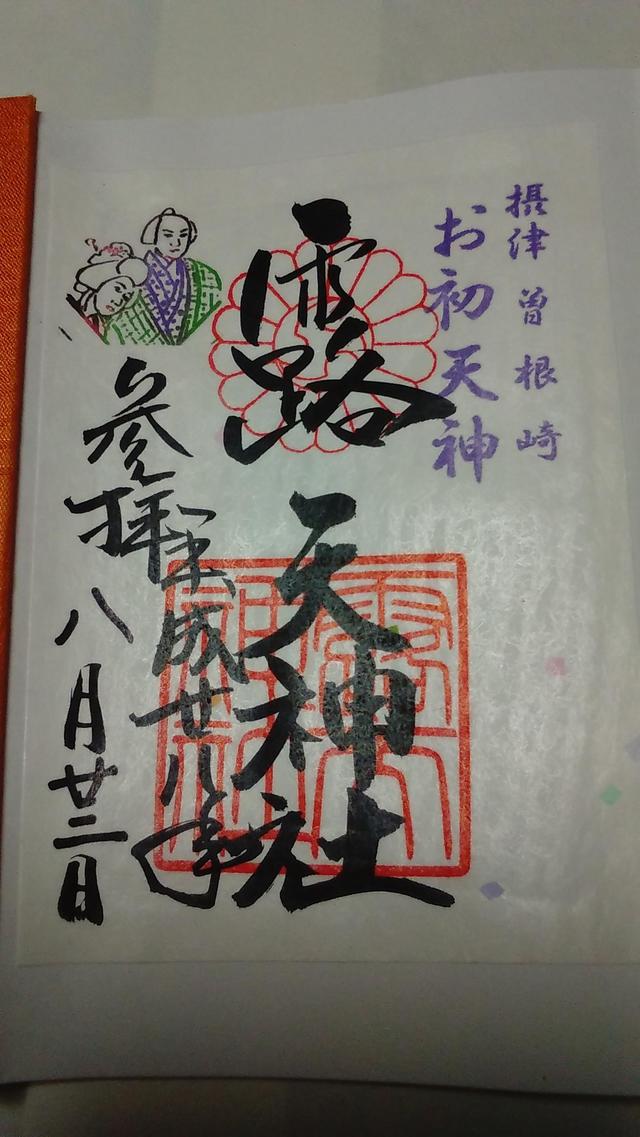 摂津 曽根崎
お初天神
露天神社
平成廿八年
参拝
八月廿二日